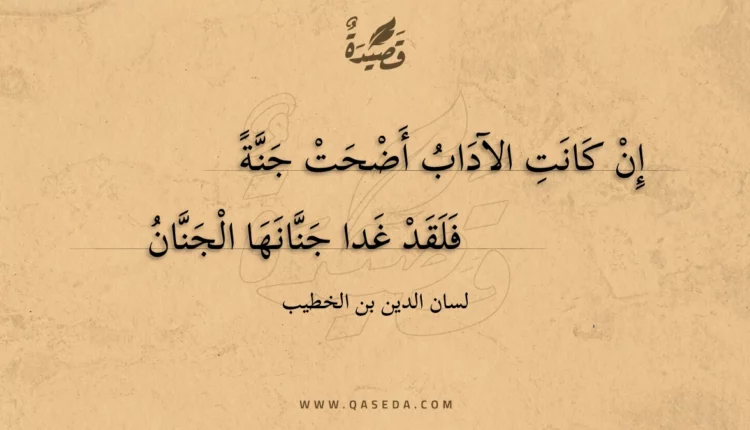 قَصِيْدَةٌ
إِنْ كَانَتِ الآدَابُ أَضْحَتْ جَنَّةً
فَلَقَدْ غَدا جَنَّانَهَا الْجَنَّانُ
لسان الدين بن الخطيب
WWW.QASEDA.COM